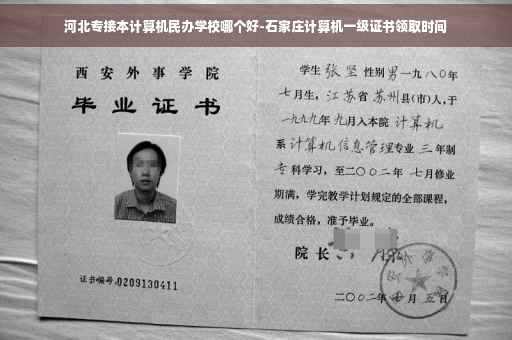 河北专接本计算机民办学校哪个好-石家庄计算机一级证书领取时间
西安外事学院
毕业证书
证书编号:0209130411
学生张坚性别男一九八〇年
七月生,江苏省苏州县(市)人,于
一九九九年九月入本院计算机
系计算机信息管理专业三年制
专科学习,至二〇〇二年七月修业
期满,学完教学计划规定的全部课程,
成绩合格,准予毕业。
院长
二〇〇二年 月五日